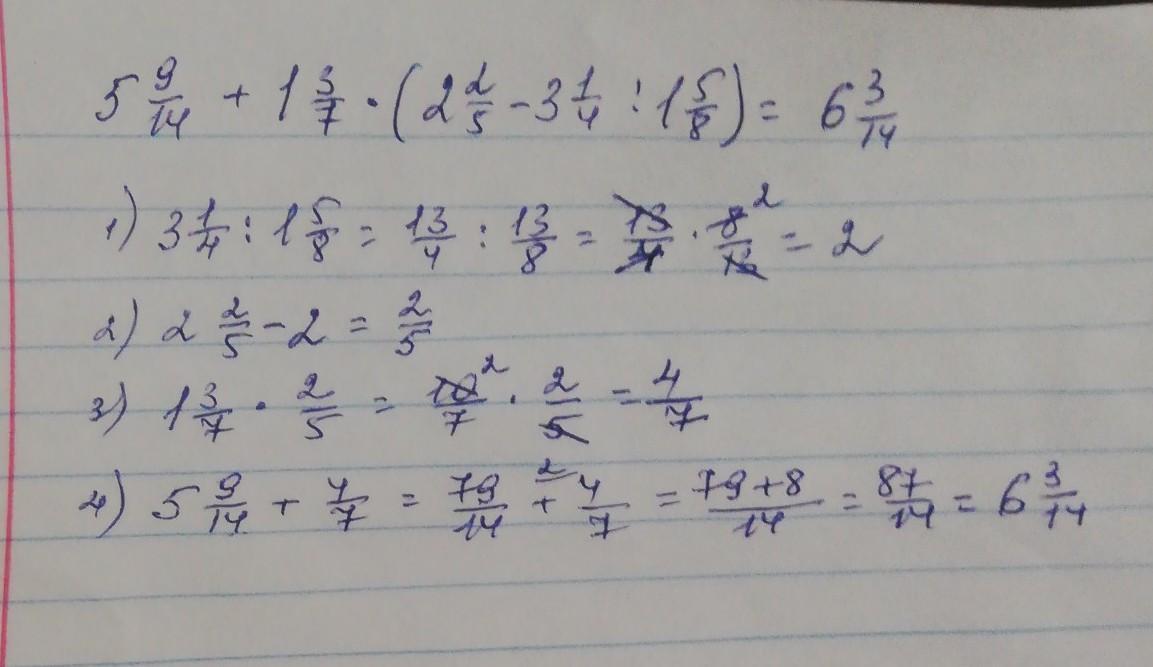 5 9/14 + 1 3/7 · (2 2/5 - 3 1/4 : 1 5/8) = 6 3/14
1) 3 1/4 : 1 5/8 = 13/4 : 13/8 = 13/4 · 8/13 2 = 2
2) 2 2/5 - 2 = 2/5
3) 1 3/7 · 2/5 = 10/7 2 · 2/5 = 4/7
4) 5 9/14 + 4/7 = 79/14 + 2 4/7 = 79+8/14 = 87/14 = 6 3/14